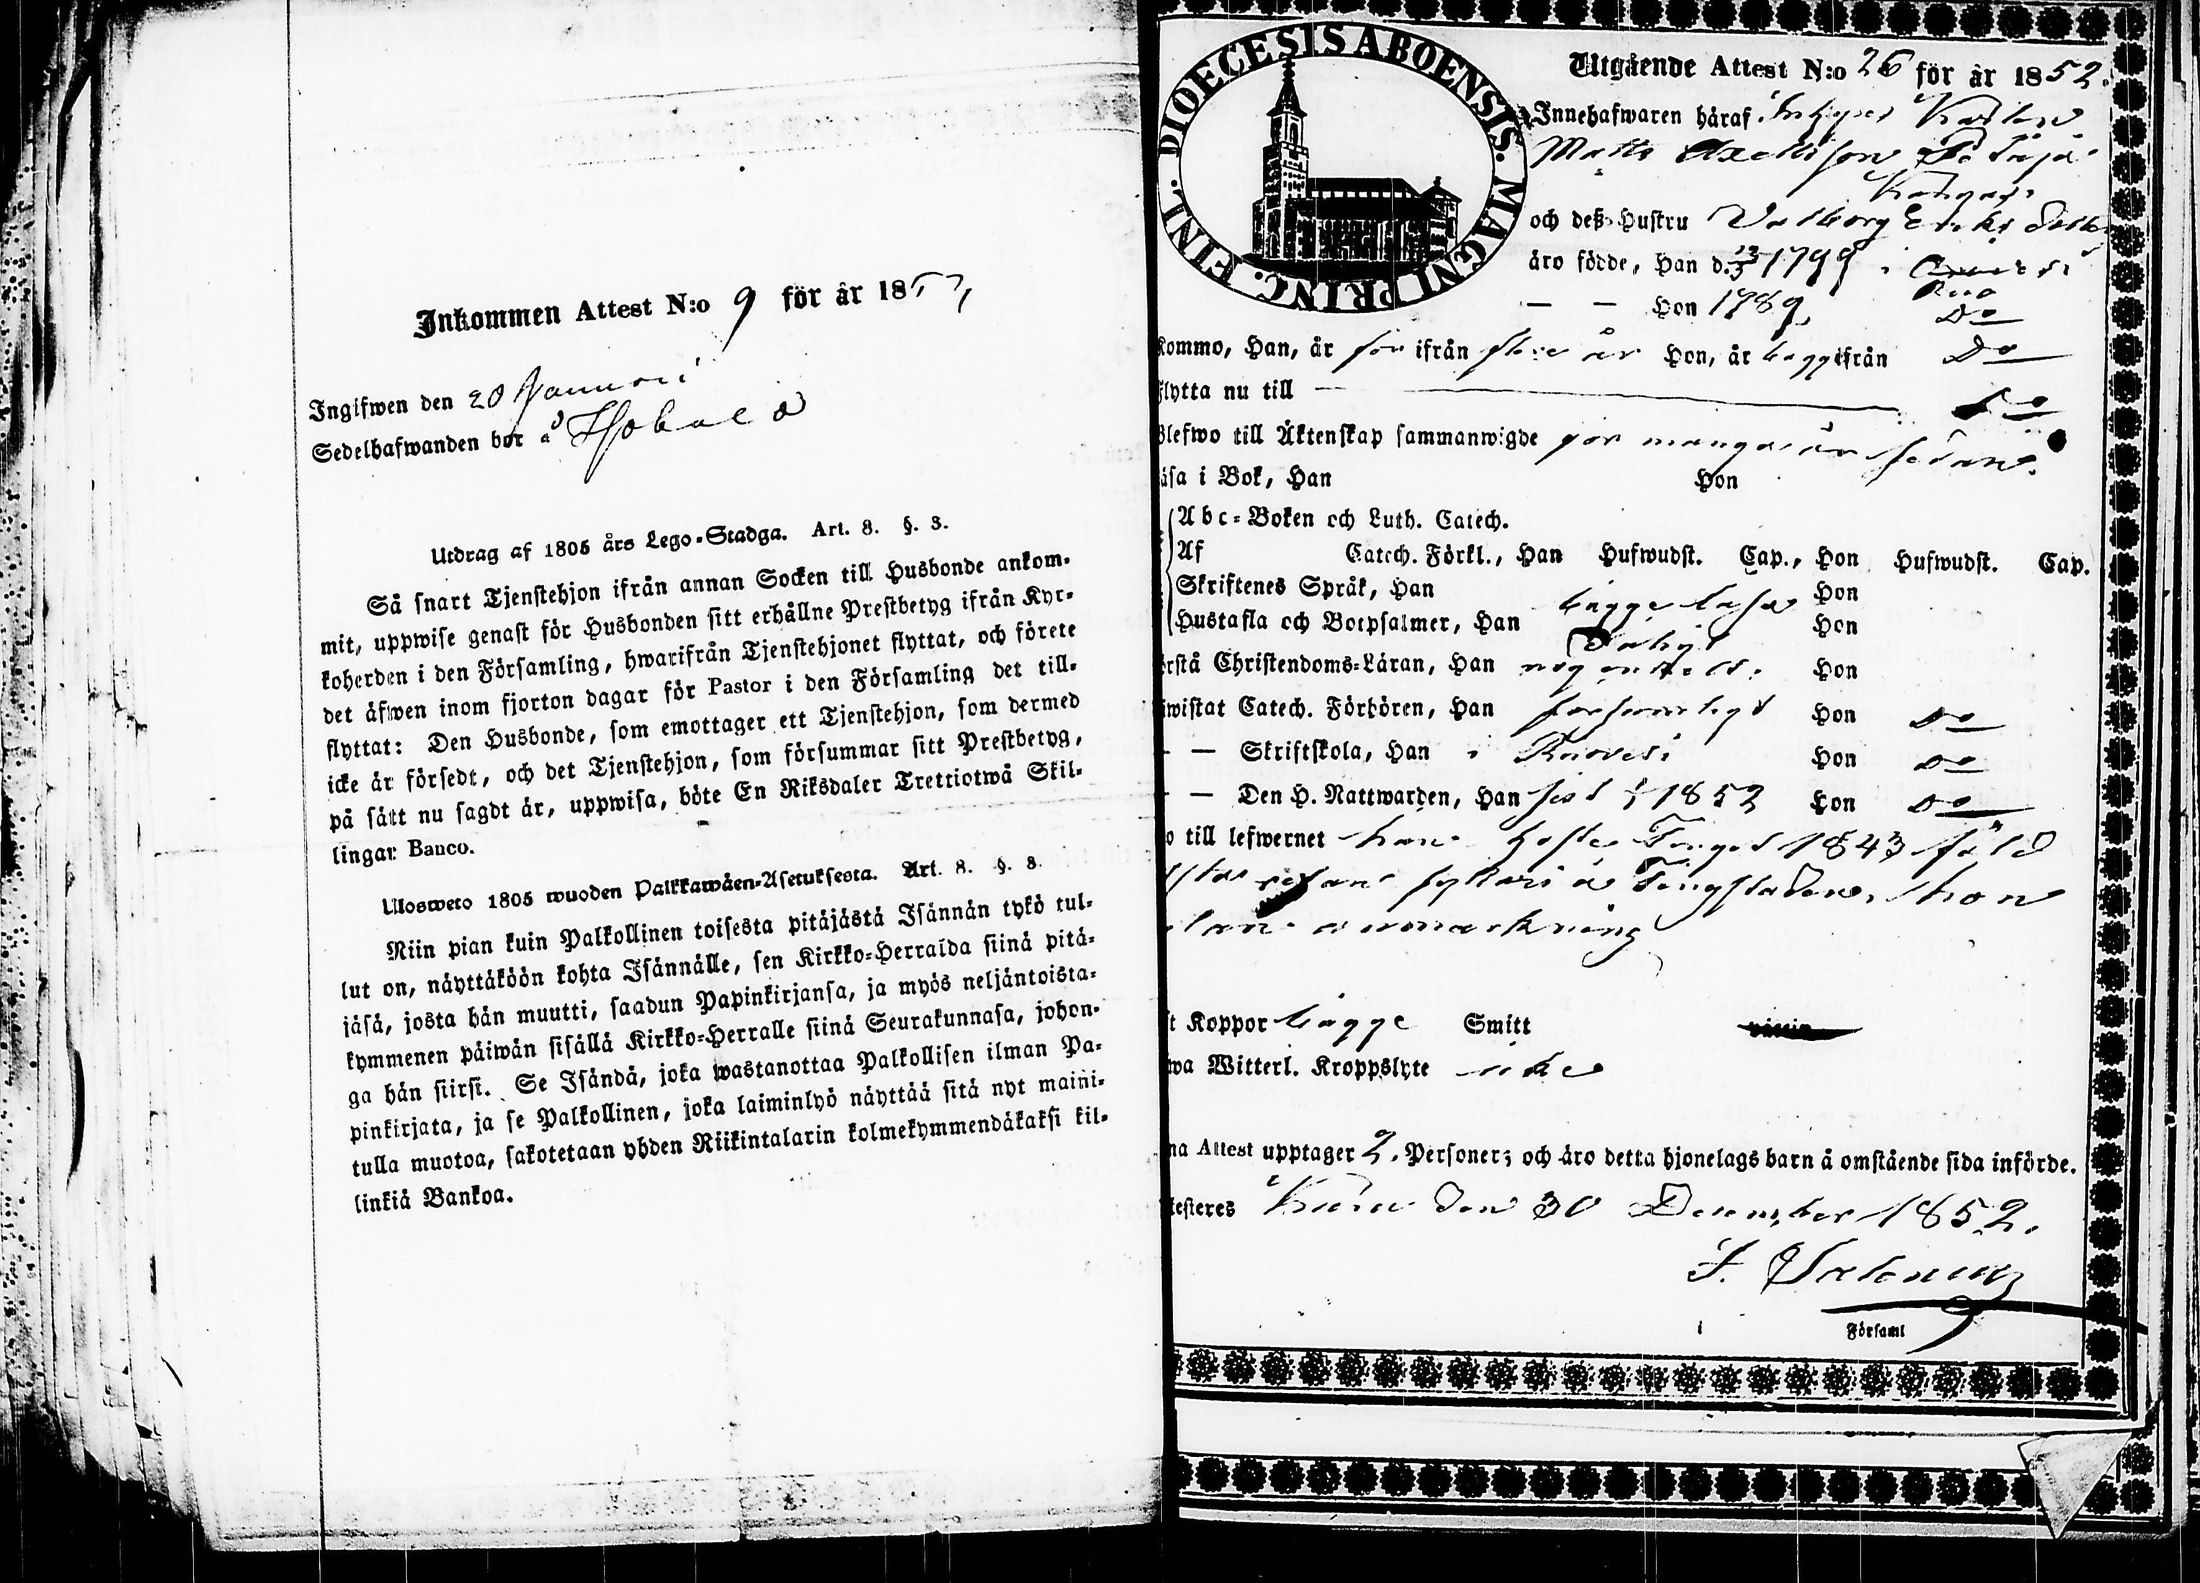 Inkommen Attest N:o 9 för år 185
Ingifwen den 20 Januari
Sedelhafwanden bor å
Utdrag af 1805 års Lego-Stadga. Art. 8. §. 3.
Så snart Tjenstehjon ifrån annan Socken till Husbonde ankom-
mit, uppwise genast för Husbonden sitt erhållne Prestbetyg ifrån Kyr-
koherden i den Församling, hwarifrån Tjenstehjonet flyttat, och förete
det äfwen inom fjorton dagar för Pastor i den Församling det till-
flyttat: Den Husbonde, som emottager ett Tjenstehjon, som dermed
icke är försedt, och det Tjenstehjon, som försummar sitt Prestbetyg,
på sätt nu sagdt är, uppwisa, böte En Riksdaler Trettiotwå Skil-
lingar Banco.
Ulosweto 1805 wuoden Palkkawäen-Asetuksesta. Art. 8. §. 8.
Niin pian kuin Palkollinen toisesta pitäjästä Isännän tykö tul-
lut on, näyttäköön kohta Isännälle, sen Kirkko-Herralda siinä pitä-
jäsä, josta hän muutti, saadun Papinkirjansa, ja myös neljäntoista-
kymmenen päiwän sisällä Kirkko-Herralle siinä Seurakunnasa, johon-
ga hän siirsi. Se Isändä, joka wastanottaa Palkollisen ilman Pa-
pinkirjata, ja se Palkollinen, joka laiminlyö näyttää sitä nyt maini-
tulla muotoa, sakotetaan yhden Riikintalarin kolmekymmendäkaksi kil-
linkiä Bankoa.
DIOECESIS ABOENSIS. MAGNI PRINC. FINL.
Utgående Attest N:o 26 för år 1852.
Innehafwaren häraf
Matts
och deß Hustru Valborg
äro födde, Han d. 13/3 1799 i
— — Hon 1789, Do
kommo, Han, år för ifrån flere år Hon, år bägge ifrån Do
flytta nu till — Do
Blefwo till Äktenskap sammanwigde för många år sedan.
äsa i Bok, Han Hon
Abc-Boken och Luth. Catech.
Af Catech. Förkl., Han Hufwudst. Cap., Hon Hufwudst. Cap.
Skriftenes Språk, Han Hon
Hustafla och Botpsalmer, Han bägge läsa Hon
rstå Christendoms-Läran, Han Hon
wistat Catech. Förhören, Han försvarligt Hon Do
— — Skriftskola, Han i Hon Do
— — Den H. Nattwarden, Han sist 1852 Hon Do
o till lefwernet 1843
utan anmärkning
t Koppor bägge Smitt
wa Witterl. Kroppslyte
na Attest upptager 2. Personer; och äro detta hjonelags barn å omstående sida införde.
testeres den 30 December 1852.
Församl